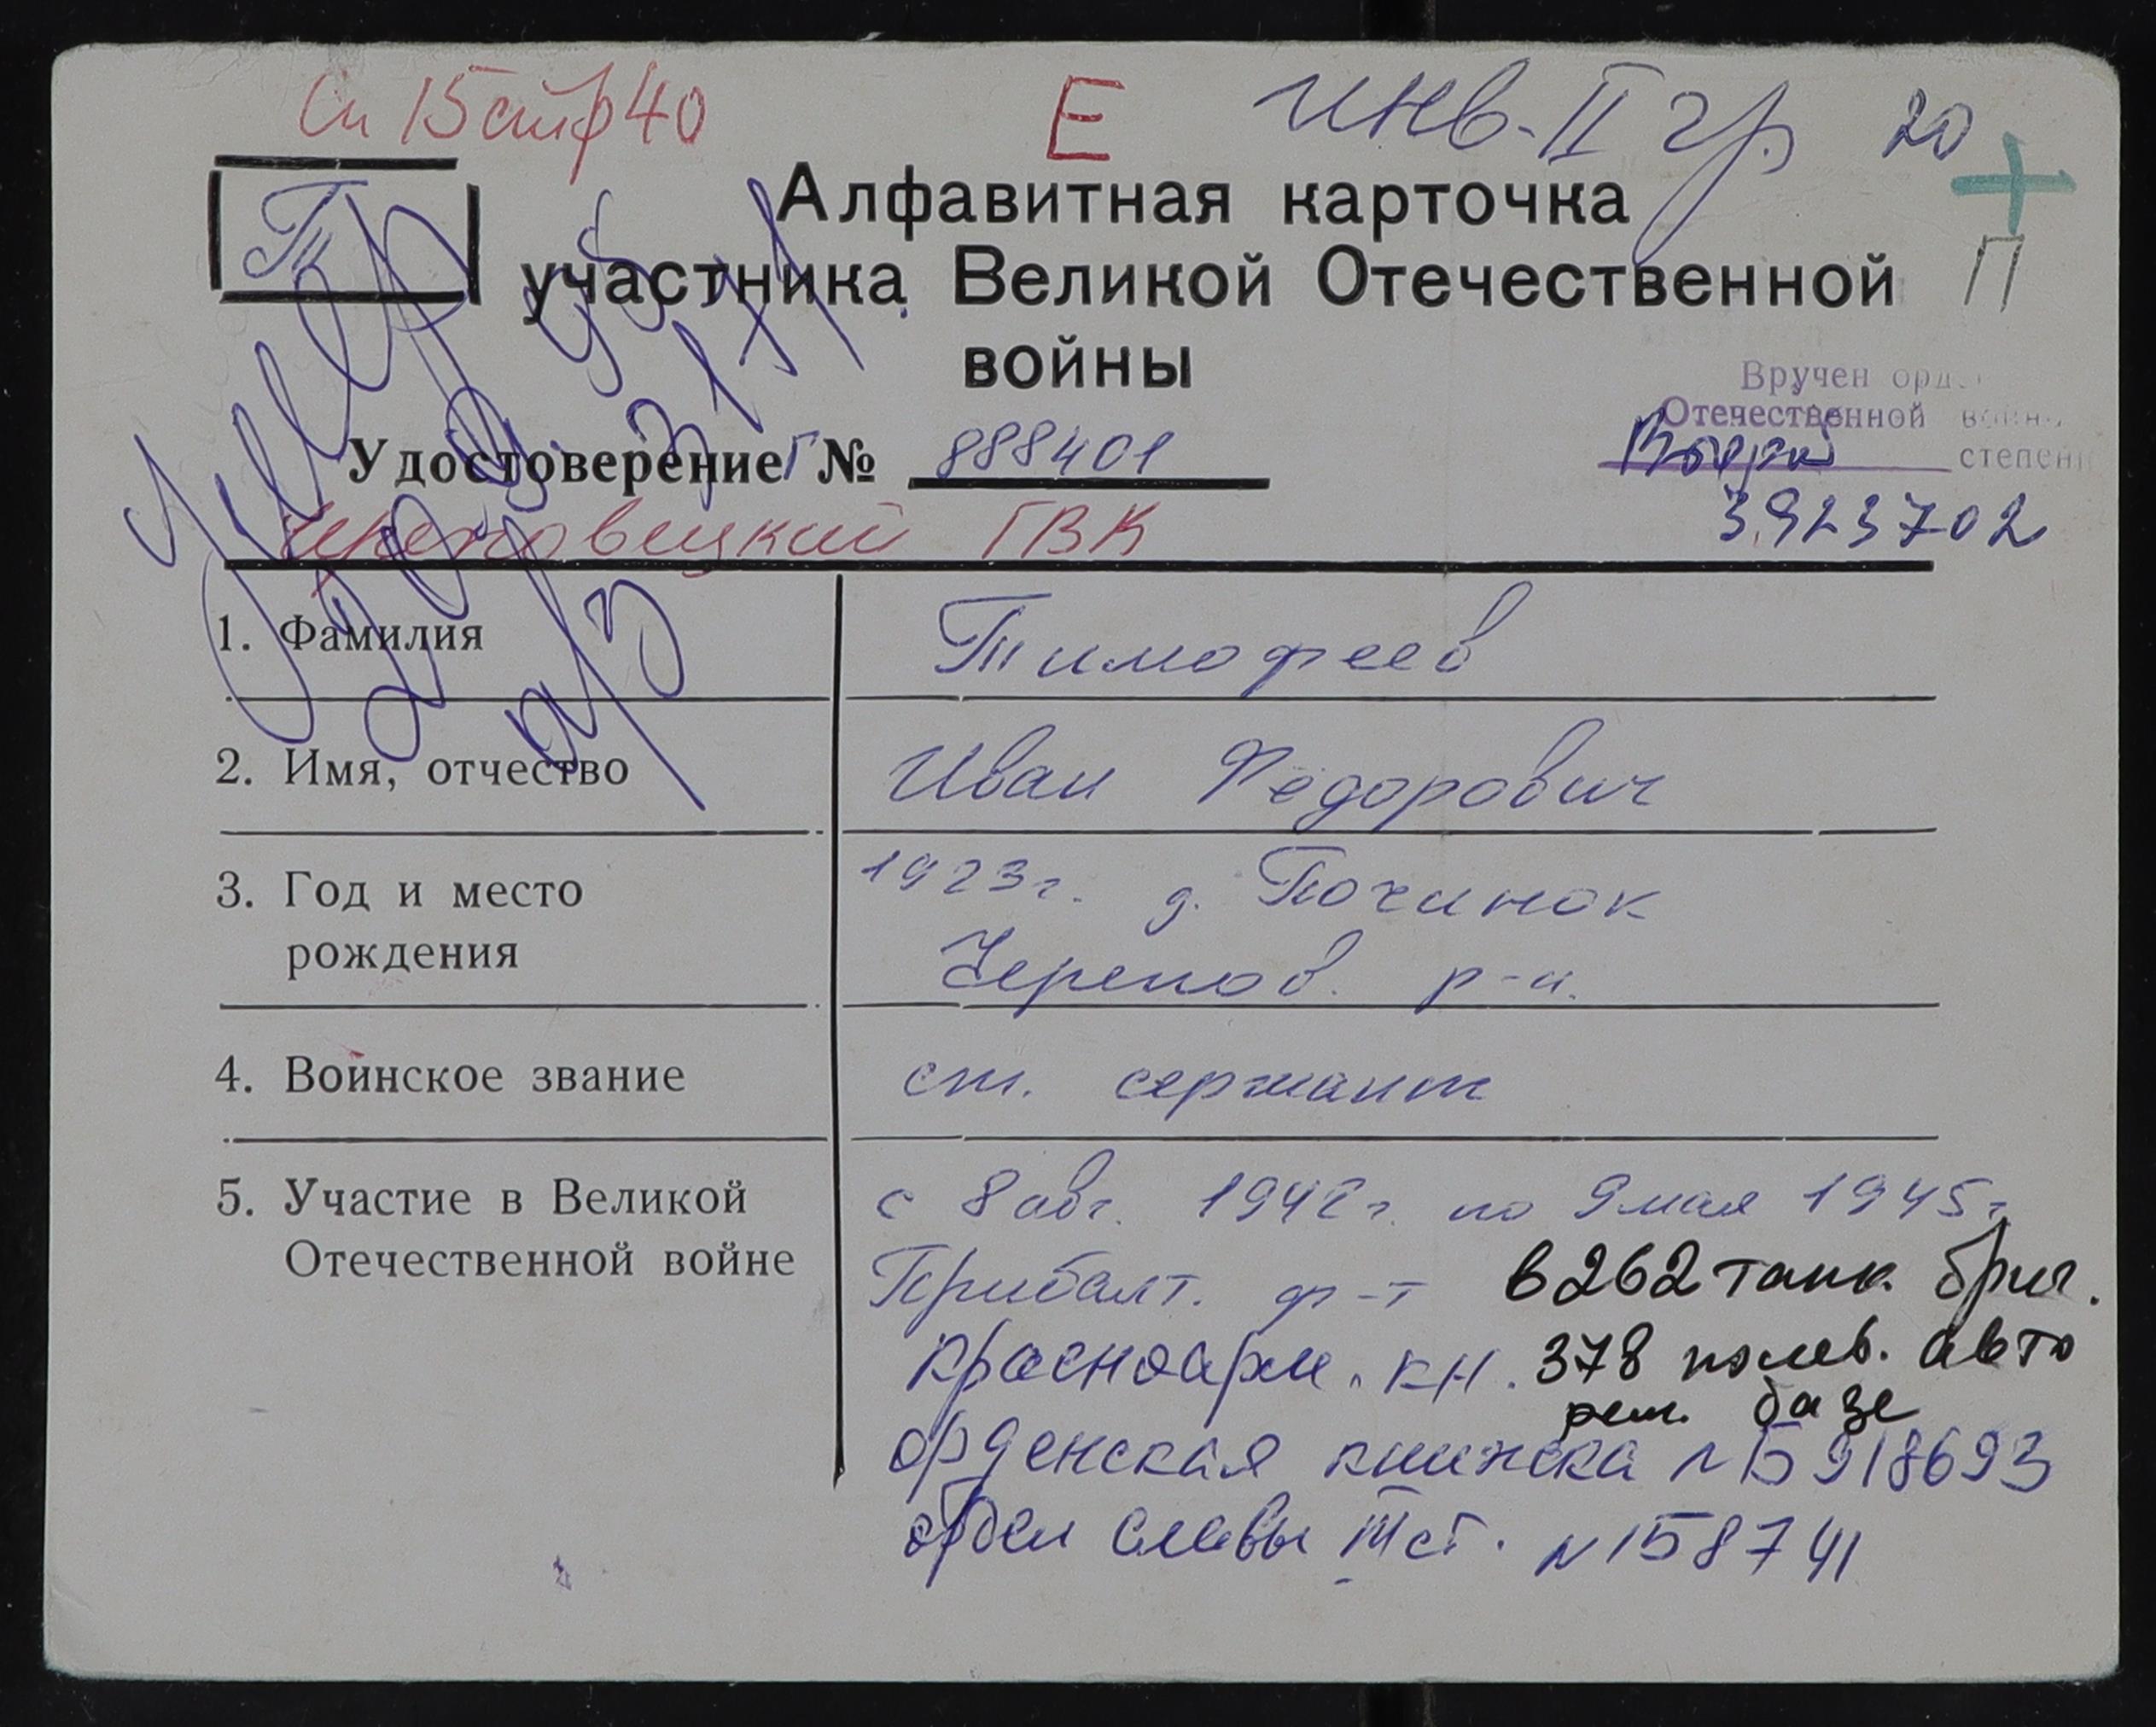 Сп 15 стр 40
Е
инв-II гр. 20
П
Т
Алфавитная карточка
участника Великой Отечественной
войны
Вручен орд
Отечественной войны
Второй степени
3923702
Удостоверение Г № 888401
Череповецкий ГВК
Умер
1. Фамилия Тимофеев
2. Имя, отчество Иван Федорович
3. Год и место 1923г. д. Починок
рождения Черепов. р-н.
4. Воинское звание ст. сержант
5. Участие в Великой с 8 авг. 1942г. по 9 мая 1945г
Отечественной войне Прибалт. ф-т в 262 танк. бриг.
красноарм. кн. 378 полев. авто
рем. базе
орденская книжка № Б 918693
орден славы III ст. N 158741